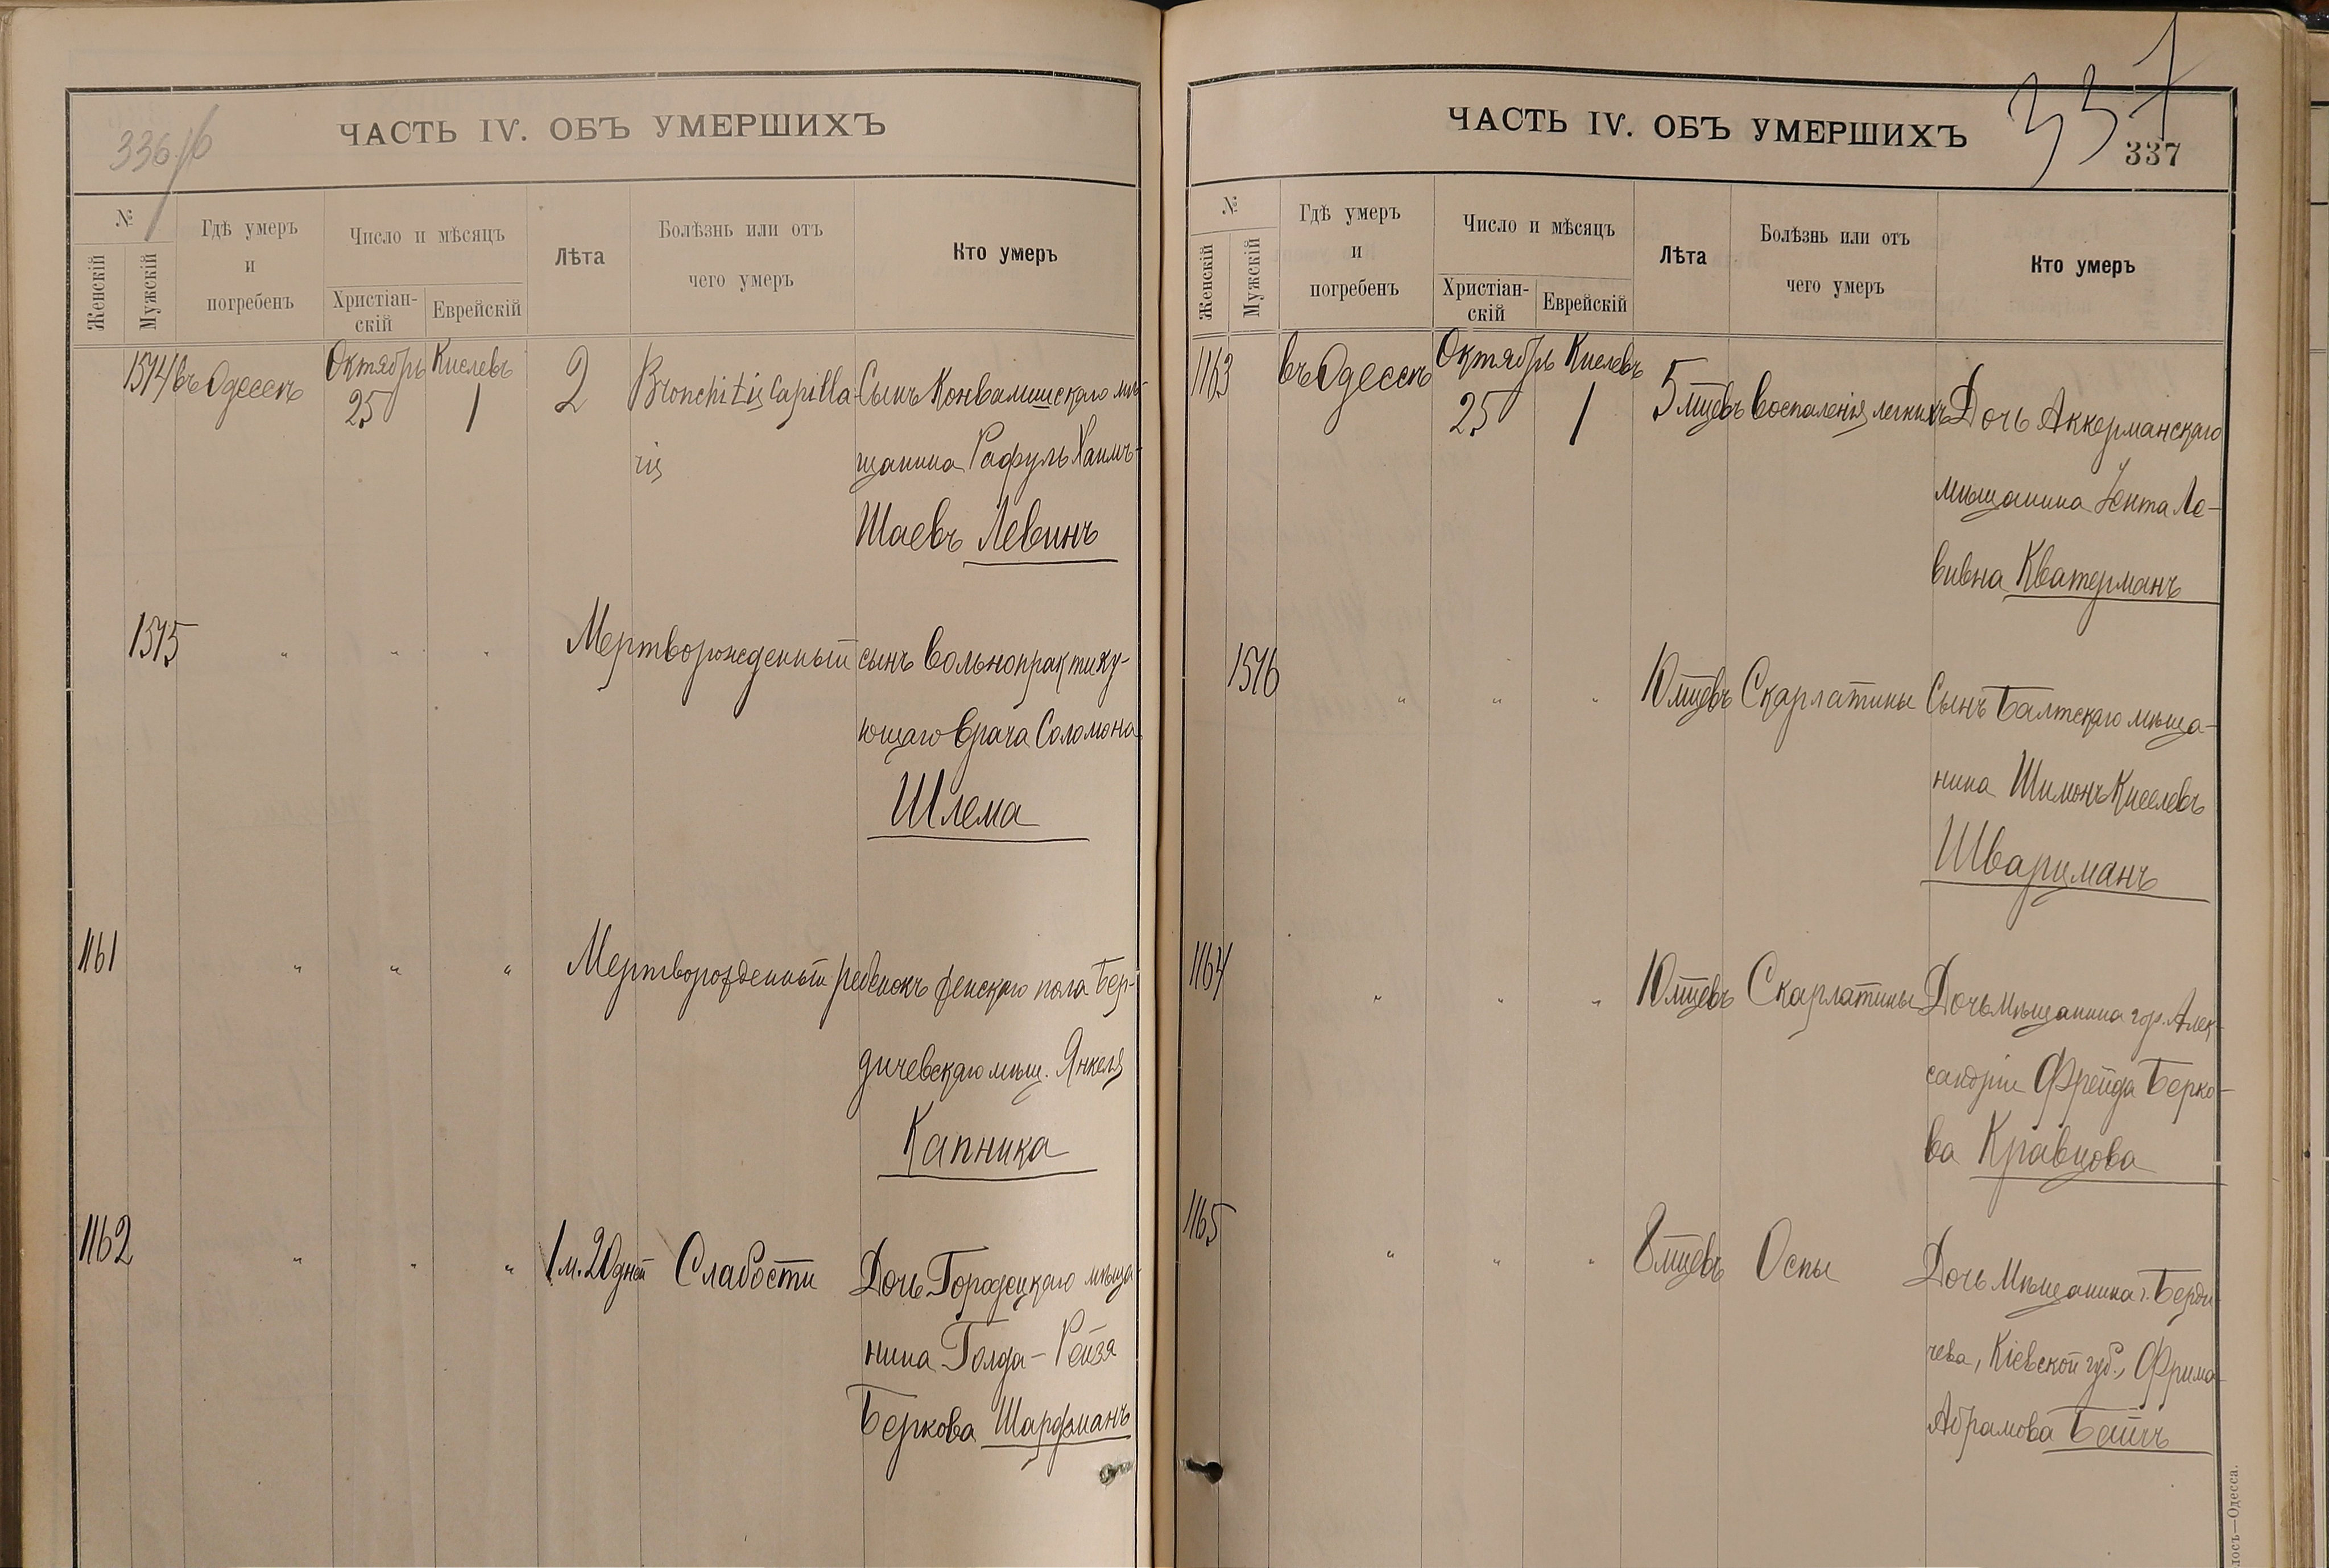 336 об
ЧАСТЬ IV. ОБЪ УМЕРШИХЪ
№
Женскій
Мужскій
Гдѣ умеръ
и
погребенъ
Число и мѣсяцъ
Христіан-
скій
Еврейскій
Лѣта
Болѣзнь или отъ
чего умеръ
Кто умеръ
1574 въ Одессѣ Октябрь Кислевъ 2 Bronchitis capilla- Сынъ мѣ-
25 1
ris щанина Рафуль Хаимъ-
Шаевъ Левинъ
1575 " " " Мертворожденный сынъ вольнопрактику-
ющаго врача Соломона
Шлема
1161 " " " Мертворожденный ребенокъ женскаго пола Бер-
дичевскаго мѣщ. Янкеля
Капника
1162 " " " 1 м. 20 дней Слабости Дочь Городецкаго мѣща-
нина Голда-Рейзя
Беркова Шарфманъ
ЧАСТЬ IV. ОБЪ УМЕРШИХЪ
337
337
№
Женскій
Мужскій
Гдѣ умеръ
и
погребенъ
Число и мѣсяцъ
Христіан-
скій
Еврейскій
Лѣта
Болѣзнь или отъ
чего умеръ
Кто умеръ
1163 въ Одессѣ Октябрь Кислевъ 5 мцевъ Воспаленія легкихъ Дочь Аккерманскаго
25 1
мѣщанина Ента Ле-
вивна Кватерманъ
1576 " " " 10 мцевъ Скарлатины Сынъ Балтскаго мѣща-
нина Шимонъ Киселевъ
Шварцманъ
1164 " " " 10 мцевъ Скарлатины Дочь мѣщанина гор. Алек-
сандріи Фрейда Берко-
ва Кравцова
1165 " " " 8 мцевъ Оспы Дочь Мѣщанина г. Берди-
чева, Кіевской губ., Фрима
Абрамова